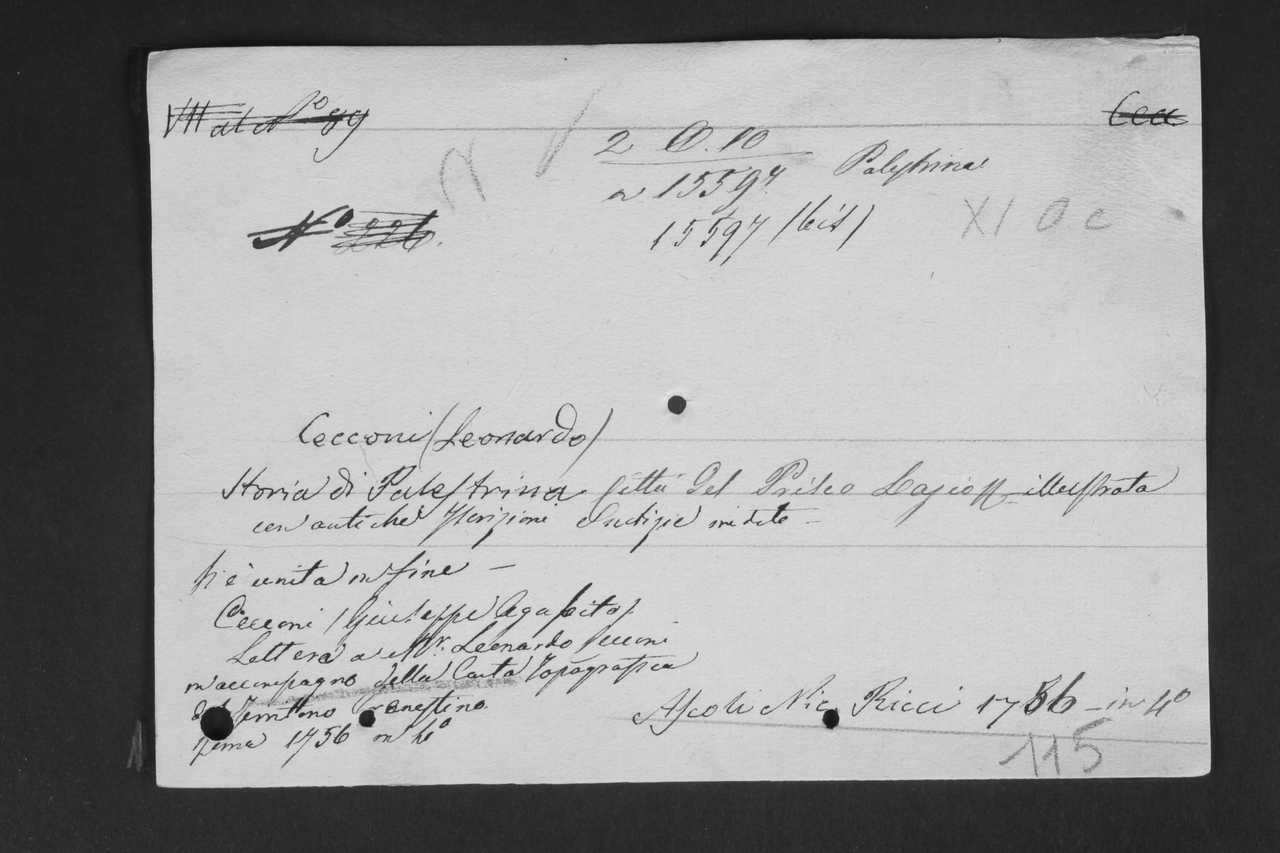 VII al N° 89
Cecc
2 @. 10
a 15597.
Palestrina
15597 (bis)
XI O c
N° 226.
Cecconi (Leonardo)
Storia di Palestrina città del Prisco Lazio illustrata
con antiche Iscrizioni e notizie inedite —
Vi è unita in fine —
Cecconi (Giuseppe Agapito)
Lettera a Mr. Leonardo Cecconi
in accompagno della Carta Topografica
del Territorio Prenestino
Roma 1756 in 4°
Ascoli Nic Ricci 1756 — in 4°
115